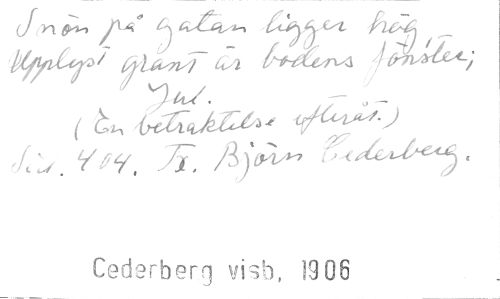 Snön på gatan ligger hög,
Upplyst grant är bodens fönster;
Jul.
(En betraktelse efteråt.)
Sid. 404. Tx. Björn Cederberg.
Cederberg visb, 1906